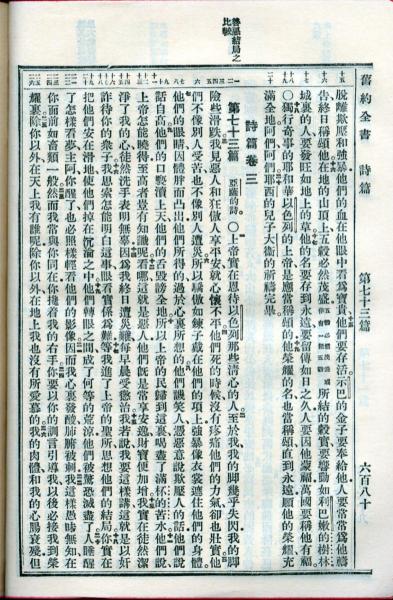 舊約全書 詩篇 第七十三篇 六百八十
脫離欺壓和強暴他們的血在他眼中看為寶貴他們要存活示巴的金子要奉給他人要常常為他禱
告終日稱頌他在地的山頂上五穀必然茂盛所結的穀實要響動如利巴嫩的樹林
城裏的人要發旺如地上的草他的名要存到永遠要留傳如日之久人要因他蒙福萬國要稱他有福
○獨行奇事的耶和華以色列的上帝是應當稱頌的他榮耀的名也當稱頌直到永遠願他的榮耀充
滿全地阿們阿們耶西的兒子大衛的祈禱完畢
詩篇卷三
善惡結局之比較
第七十三篇 亞薩的詩○上帝實在恩待以色列那些清心的人至於我我的脚幾乎失閃我的脚
險些滑跌我見惡人和狂傲人享平安就心懷不平他們死的時候沒有疼痛他們的力氣卻也壯實他
們不像別人受苦也不像別人遭災所以驕傲如鍊子戴在他們的項上強暴像衣裳遮住他們的身體
他們的眼睛因體胖而凸出他們所得的過於心裏所想的他們譏笑人憑惡意說欺壓人的話他們說
話自高他們的口褻瀆上天他們的舌毀謗全地所以上帝的民歸到這裏喝盡了滿杯的苦水他們說
上帝怎能曉得至高者豈有知識呢看哪這就是惡人他們旣是常享安逸財寶便加增我實在徒然潔
淨了我的心徒然洗手表明無辜因為我終日遭災難每早晨受懲治我若說我要這樣講這就是以奸
詐待你的衆子我思索怎能明白這事眼看實係為難等我進了上帝的聖所思想他們的結局你實在
把他們安在滑地使他們掉在沉淪之中他們轉眼之間成了何等的荒涼他們被驚恐滅盡了人睡醒
了怎樣看夢主阿你醒了也必照樣輕看他們的影像因而我心裏發酸肺腑被刺我這樣愚昧無知在
你面前如畜類一般然而我常與你同在你攙着我的右手你要以你的訓言引導我以後必接我到榮
耀裏除你以外在天上我有誰呢除你以外在地上我也沒有所愛慕的我的肉體和我的心腸衰殘但